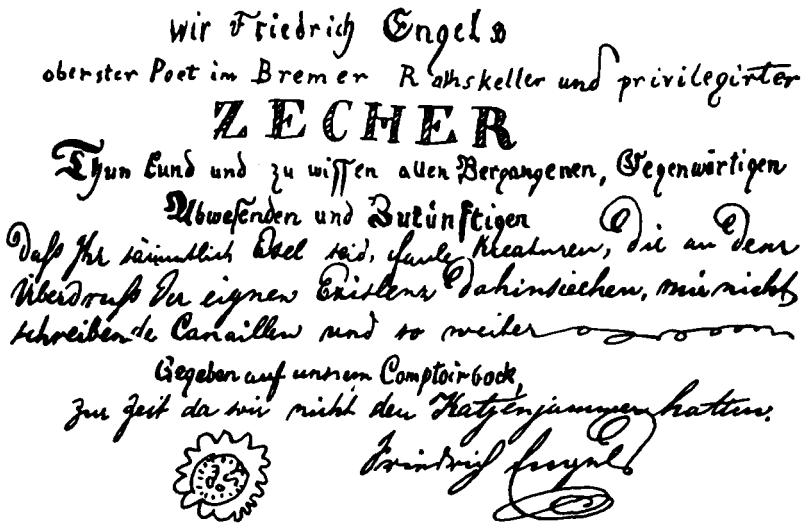 Wir Friedrich Engels
oberster Poet im Bremer Rathskeller und privilegirter
ZECHER
Thun kund und zu wissen allen Vergangenen, Gegenwärtigen
Abwesenden und Zukünftigen
Daß Ihr sämmtlich Esel seid, faule Kreaturen, die an dem
Überdruß der eignen Existenz dahinsiechen, mir nicht
schreibende Canaillen und so weiter
Gegeben auf unsrem Comptoirbock,
zur Zeit da wir nicht den Katzenjammer hatten.
Friedrich Engels